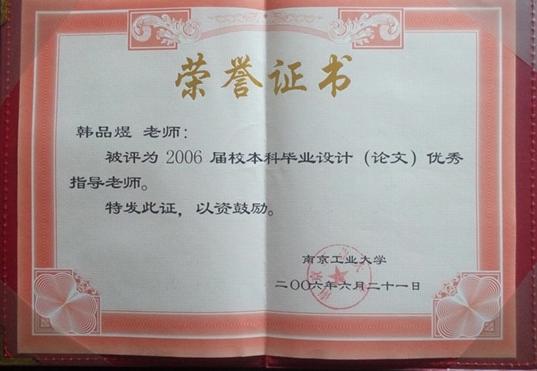 荣誉证书
韩品煜 老师：
被评为 2006 届校本科毕业设计（论文）优秀
指导老师。
特发此证，以资鼓励。
南京工业大学
二〇〇六年六月二十一日